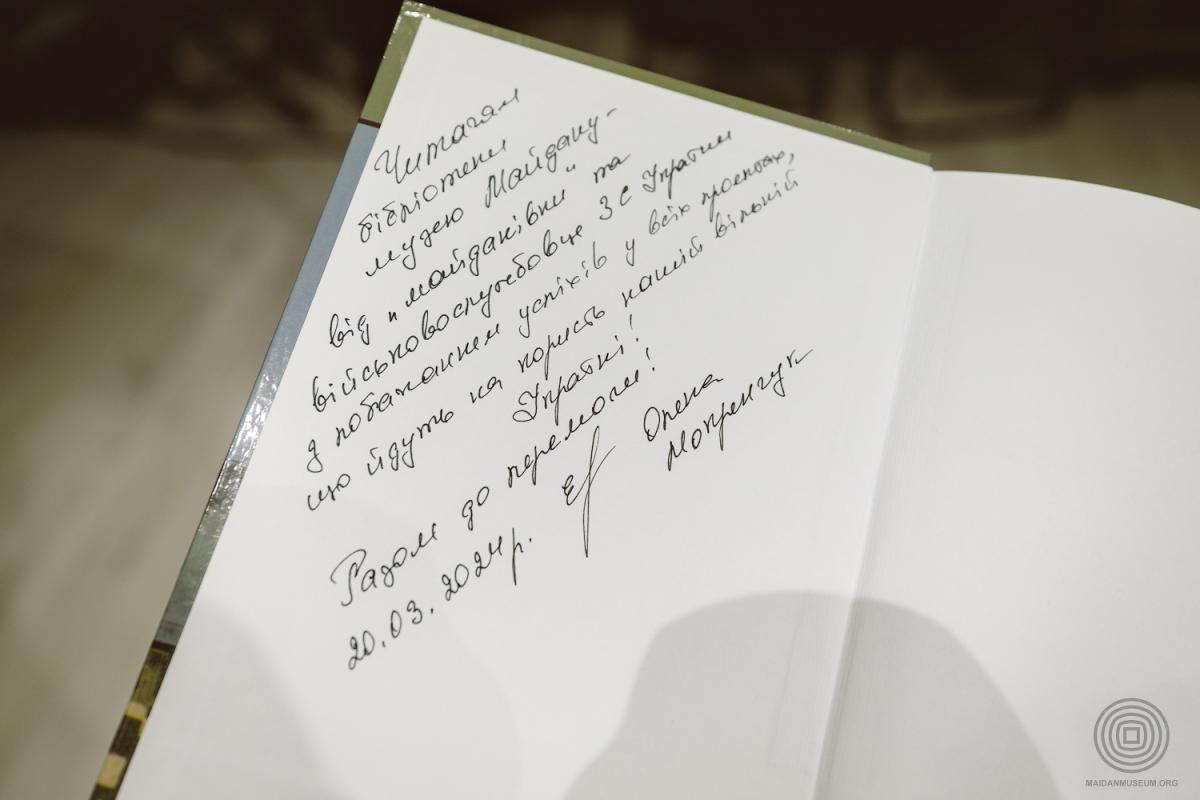 Читачам
бібліотеки
музею Майдану -
від "майданівки" та
військовослужбовця ЗС України
з побажанням успіхів у всіх проектах,
що йдуть на користь нашій вільній
Україні!
Разом до перемоги!
20.03.2024р.
Олена
Мокренчук
MAIDANMUSEUM.ORG